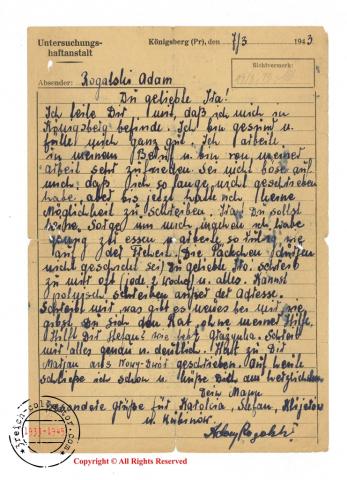 Untersuchungs-
haftanstalt
Königsberg (Pr), den 7/3 1943
Sichtvermerk:
Absender: Rogalski Adam
Du geliebte Ita!
Ich teile Dir mit, daß ich mich in
Königsberg befinde. Ich bin gesund u.
fühle mich ganz gut. Ich arbeite
in meinem Beruf u. bin von meiner
Arbeit sehr zufrieden. Sei nicht böse auf
mich, daß ich so lange nicht geschrieben
habe, aber bis jetzt hatte ich keine
Möglichkeit zu schreiben. Ita, Du sollst
keine Sorge um mich haben, ich habe
genug zu essen u. arbeite so ruhig wie
auf der Freiheit. (Die Päckchen dürfen
nicht geschickt sei) Du geliebte Ita, schreib
zu mir oft jede 2 Wochen u. alles. Kannst
polnisch schreiben außer der Adresse.
Schreib mir, was gibt es neues bei mir, wie
gibst Du sich den Rat, ohne meiner Hilfe.
Hilft Dir Stefans, wie lebt Grazynka. Schreib
mir alles genau u. deutlich. Hat zu Dir
Marjan aus Nowy-Dwór geschrieben. Auf weile
schließe ich schon u. grüße Dich am herzlichsten
Dein Mann
Besondere Grüße für Karolcia, Stefan,
u.
Adam Rogalski
3reich-collector.com
1933-1945
Copyright © All Rights Reserved